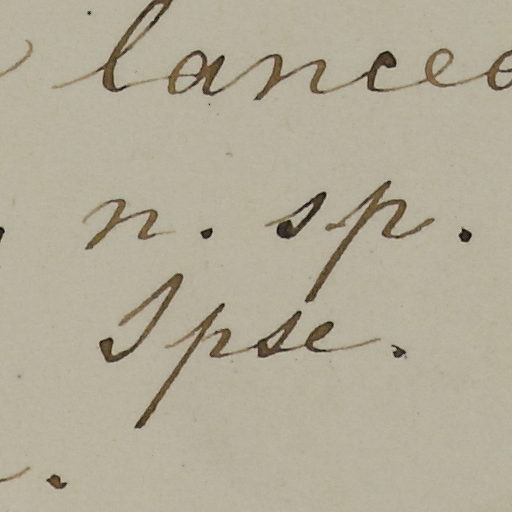 lanceo
n. sp.
Ipse.